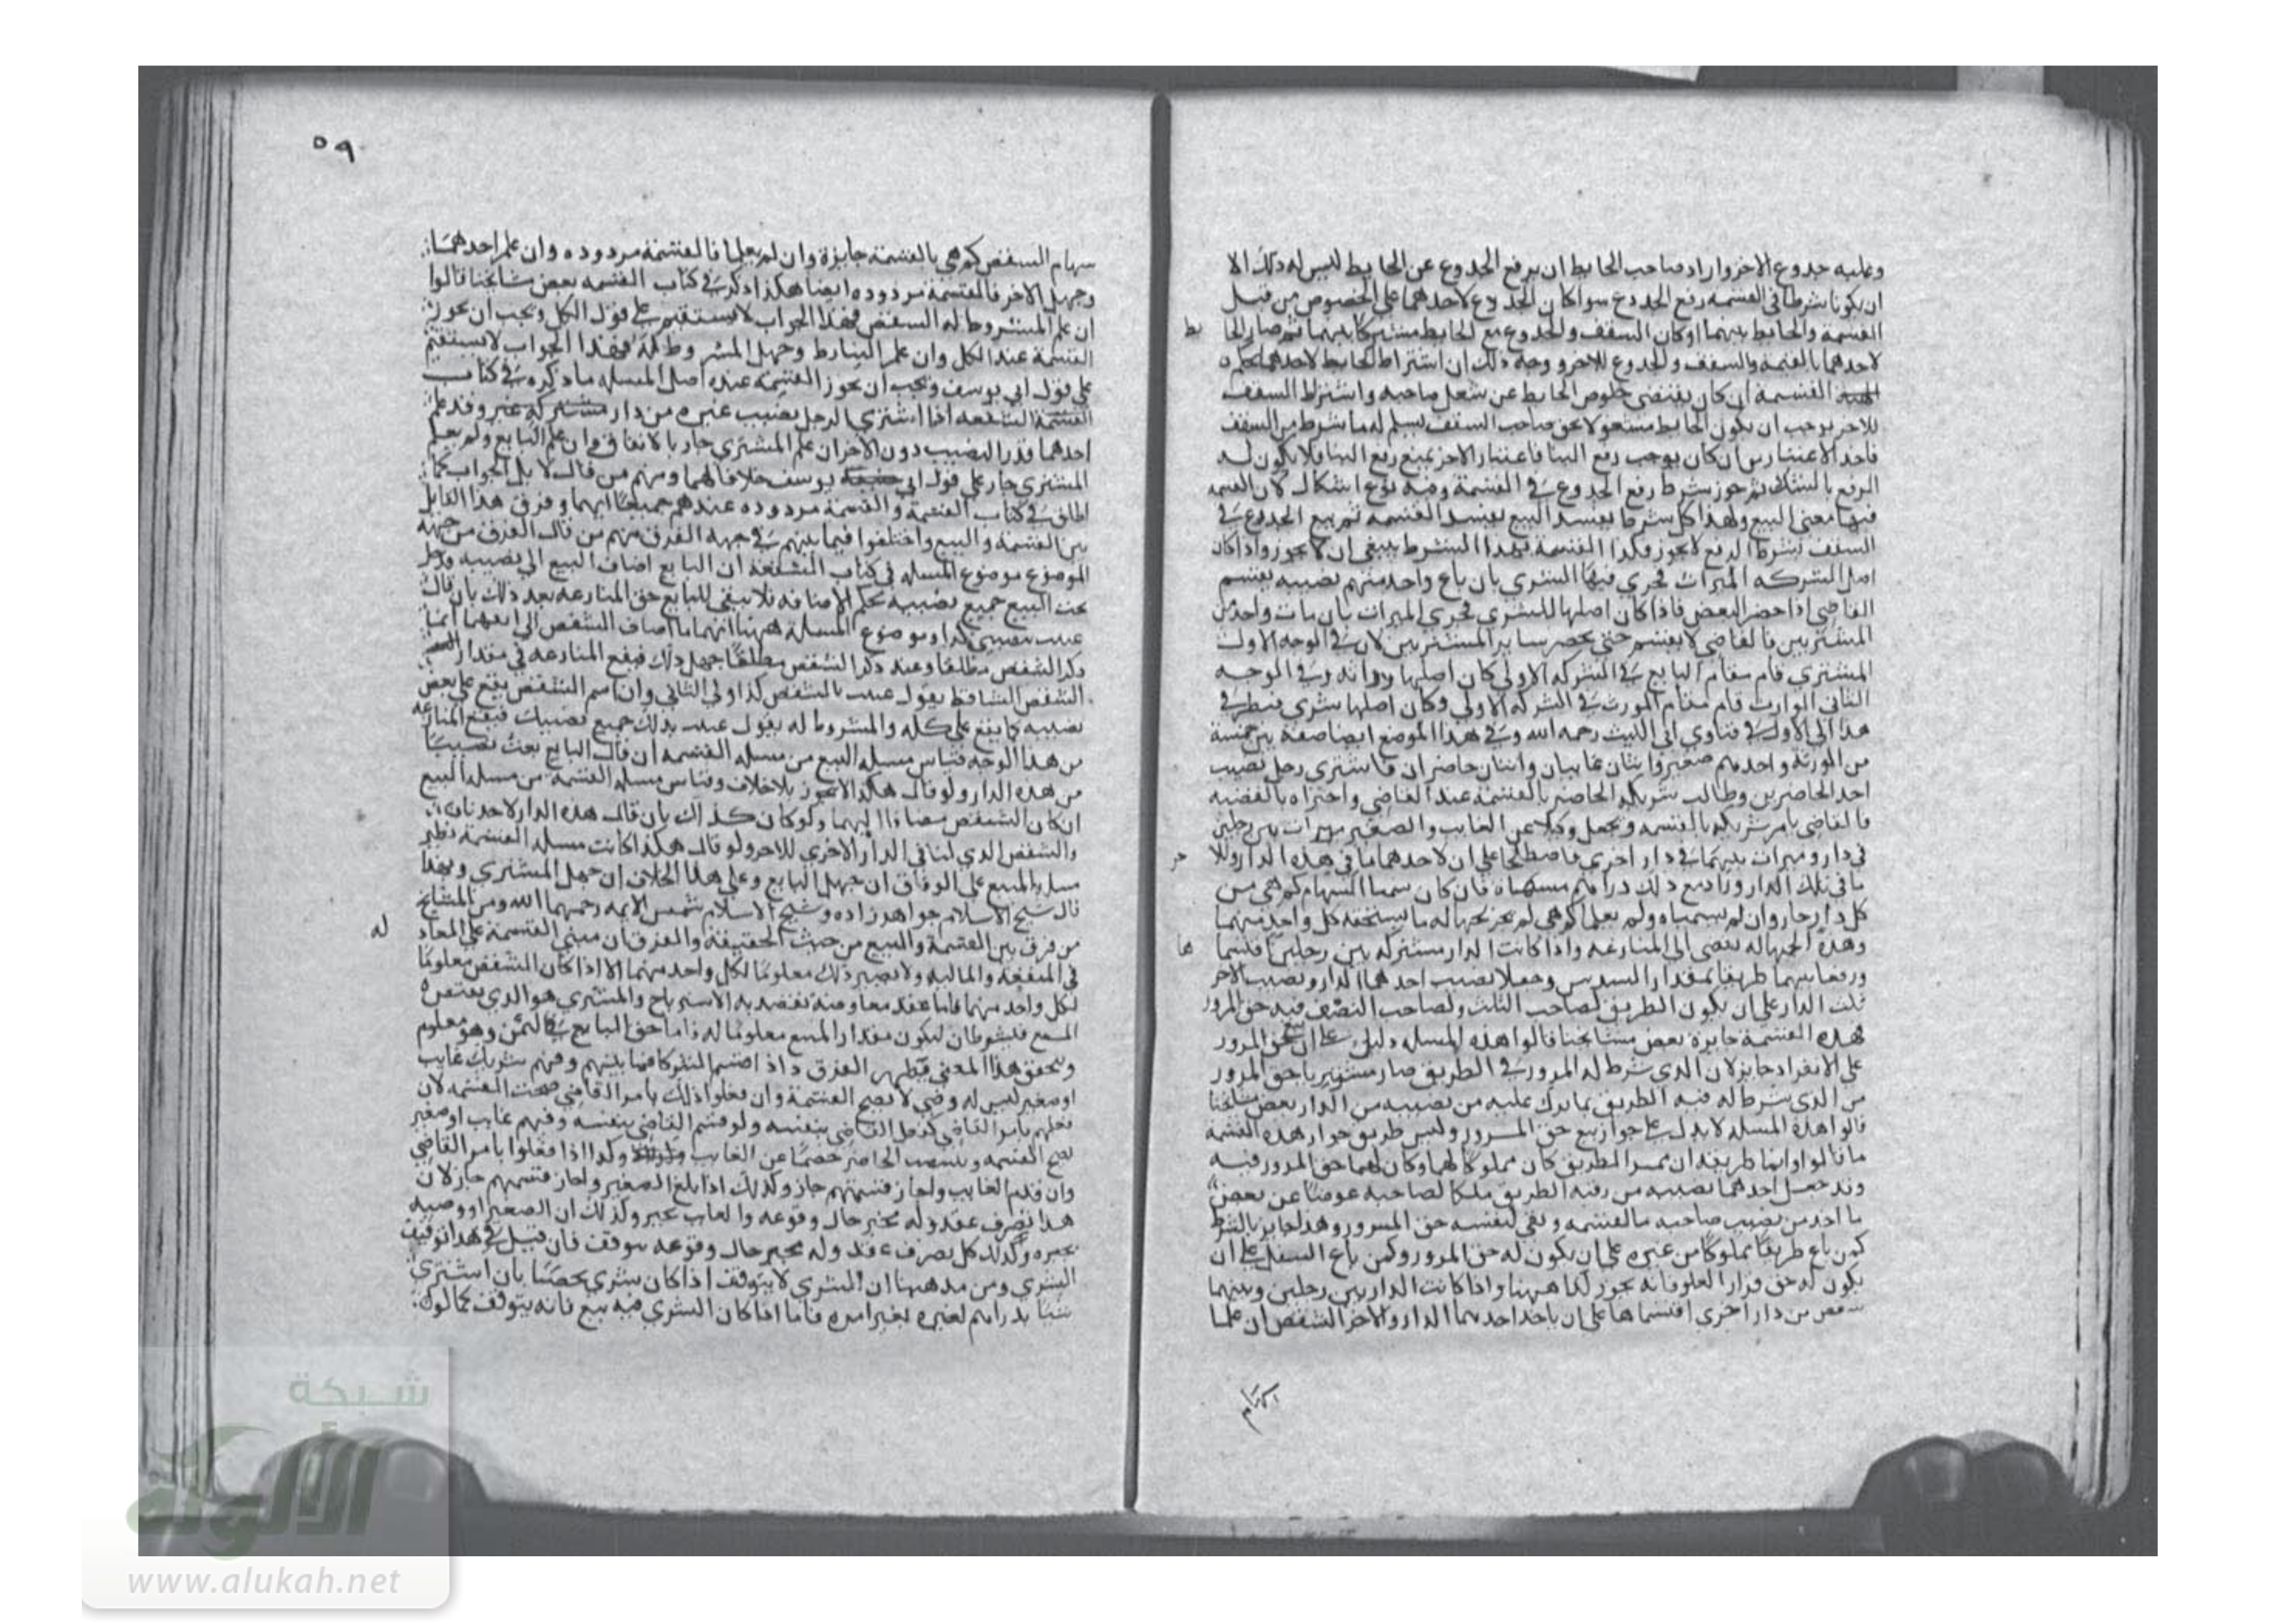 وعليه جدوع الاخر واراد صاحب الحايط ان يرفع الجدوع عن الحايط ليس له ذلك الا
ان يكونا شرطا في القسمه رفع الجدوع سوا كان الجدوع لاحدهما على الخصوص من قبل
القسمة والحايط بينهما او كان السقف والجدوع مع الحايط مشتركا بينهما ثم صار الحا
يط
لاحدهما بالقسمة والسقف والجدوع للاخر ووجه ذلك ان اشتراط الحايط لاحدهما بحكم
القسمة ان كان يقتضى خلوص الحايط عن شغل صاحبه واشتراط السقف
للاخر يوجب ان يكون الحايط مشغولا بحق صاحب السقف ليسلم له ما شرط من السقف
فاحد الاعتبارين ان كان يوجب رفع البنا فاعتبار الاخر يمنع رفع البنا فلا يكون له
الرفع بالشك ثم جوز شرط رفع الجدوع في القسمة وفيه نوع اشكال لان القسمه
فيها معنى البيع ولهذا كل شرط يفسد البيع يفسد القسمه ثم بيع الجدوع في
السقف بشرط الرفع لا يجوز فكذا القسمة بهذا الشرط ينبغى ان لا يجوز واذا كان
اصل الشركه الميراث فجرى فيها الشرى بان باع واحد منهم نصيبه يقسم
القاضي اذا حضر البعض فاذا كان اصلها للشرى فجرى الميراث بان مات واحد من
المشتريين فالقاضى لا يقسم حتى يحضر ساير المشتريين لان في الوجه الاول
المشترى قام مقام البايع في الشركه الاولى كان اصلها وراثه وفي الوجه
الثانى الوارث قام مقام المورث في الشركه الاولى وكان اصلها شرى فينظر في
هذا الى الاول في فتاوى ابى الليث رحمه الله وفي هذا الموضع ايضا صنعة بين خمسة
من الورثة واحد منهم صغير واثنان غايبان واثنان حاضران فاشترى رجل نصيب
احد الحاضرين وطالب شريكه الحاضر بالقسمة عند القاضى واخبراه بالقضيه
فالقاضى يامر شريكه بالقسمه ويجعل وكيلا عن الغايب والصغير ميراث بين رجلين
في دار وميراث بينهما في دار اخرى فاصطلحا على ان لاحدهما ما في هذه الدار وللا
خر
ما في تلك الدار وزاد مع ذلك دراهم مسماة فان كان سميا السهام كم هى من
كل دار جاز وان لم يسمياه ولم يعلما كم هى لم يجز لجهاله ما يستحقه كل واحد منهما
وهذه الجهاله تفضى الى المنازعه واذا كانت الدار مشتركه بين رجلين فاقتسما
ها
ورفعا بينهما طريقا بمقدار السدس وجعلا نصيب احدهما الدار ونصيب الاخر
ثلث الدار على ان يكون الطريق لصاحب الثلث ولصاحب النصف فيه حق المرور
هذه القسمة جايزة بعض مشايخنا قالوا هذه المسله دليل على ان بيع حق المرور
على الانفراد جايز لان الذى شرط له المرور في الطريق صار مشتريا حق المرور
من الذى شرط له فيه الطريق بما ترك عليه من نصيبه من الدار بعض مشايخنا
قالوا هذه المسله لا تدل على جواز بيع حق المرور وليس طريق جواز هذه القسمة
ما قالوا وانما طريقه ان ممر الطريق كان مملوكا لهما وكان لهما حق المرور فيه
وقد جعل احدهما نصيبه من رقبه الطريق ملكا لصاحبه عوضا عن بعض
ما اخد من نصيب صاحبه بالقسمه وبقى لنفسه حق المرور وهذا جايز بالشرط
كمن باع طريقا مملوكا من غيره على ان يكون له حق المرور وكمن باع السفل على ان
يكون له حق قرار العلو فانه يجوز كذا ههنا واذا كانت الدار بين رجلين وبينهما
شقص من دار اخرى اقتسماها على ان ياخد احدهما الدار والاخر الشقص ان علما
٥٩
سهام الشقص كم هى فالقسمة جايزة وان لم يعلما فالقسمة مردوده وان علم احدهما
وجهل الاخر فالقسمة مردوده ايضا هكذا ذكر في كتاب القسمه بعض مشايخنا قالوا
ان علم المشروط له الشقص فهذا الجواب لا يستقيم على قول الكل ويجب ان يجوز
القسمة عند الكل وان علم الشارط وجهل المشروط له فهذا الجواب لا يستقيم
على قول ابى يوسف ويجب ان يجوز القسمه عنده اصل المسله ما ذكره في كتاب
الشفعه اذا اشترى الرجل نصيب غيره من دار مشتركه غير وقد علم
احدهما قدر النصيب دون الاخر ان علم المشترى جاز بالاتفاق وان علم البايع ولم يعلم
المشترى جاز على قول ابى يوسف خلافا لهما ومنهم من قال لا بل الجواب كما
اطلق في كتاب القسمة والقسمة مردوده عندهم جميعا ايهما وفرق هذا القايل
بين القسمة والبيع واختلفوا فيما بينهم في جهة الفرق منهم من قال الفرق من جهة
الموضوع موضوع المسله في كتاب الشفعه ان البايع اضاف البيع الى نصيبه ودخل
تحت البيع جميع نصيبه بحكم الاضافه فلا يبقى للبايع حق المنازعه بعد ذلك بان قال
عنيت بنصيبى كذا وموضوع المسلة ههنا انهما ما اضاف الشقص الى انفسهما انما
ذكر الشقص مطلقا وعند ذكر الشقص مطلقا جهل ذلك فيقع المنازعه في مقدار
الشقص الشارط يقول عنيت بالشقص كذا والثانى وان اسم الشقص يقع على بعض
نصيبه كما يقع على كله والمشروط له يقول عنيت بذلك جميع نصيبك فيقع المنازعه
من هذا الوجه قياس مسله البيع من مسله القسمه ان قال البايع بعت نصيبا
من هذه الدار ولو قال هكذا لا يجوز بلا خلاف وقياس مسله القسمة من مسله البيع
ان كان الشقص مضافا اليهما ولو كان كذلك بان قال هذه الدار لاحدنا
والشقص الذي لنا في الدار الاخرى للاخر ولو قال هكذا كانت مسله القسمة نظير
مسله البيع على الوفاق ان جهل البايع وعلى هذا الخلاف ان جهل المشترى وبهذا
قال شيخ الاسلام خواهر زاده وشيخ الاسلام شمس الايمه رحمهما الله ومن المشايخ
من فرق بين القسمة والبيع من حيث الحقيقة والفرق ان مبنى القسمة على المعاد
له
في المنفعة والماليه ولا يصير ذلك معلوما لكل واحد منهما الا اذا كان الشقص معلوما
لكل واحد منهما فاما عقد معاوضة يقصد به الاسترباح والمشترى هو الذي يقبض
المبيع فيشترط ان يكون مقدار المبيع معلوما له فاما حق البايع في الثمن وهو معلوم
ويتحقق هذا المعنى فيظهر الفرق واذا اقتسم الشركا فيما بينهم وفيهم شريك غايب
او صغير ليس له وصى لا يصح القسمة وان فعلوا ذلك بامر القاضى صحت القسمه لان
فعلهم بامر القاضى كفعل القاضى بنفسه ولو قسم القاضى بنفسه وفيهم غايب او صغير
يصح القسمه وينصب الحاضر خصما عن الغايب وكذا اذا فعلوا بامر القاضي
وان قدم الغايب واجاز قسمتهم جاز وكذلك اذا بلغ الصغير واجاز قسمتهم جاز لان
هذا تصرف عقد وله مجيز حال وقوعه والغايب مجيز وكذلك ان الصغير او وصيه
يجيزه وكذلك كل تصرف عقد وله مجيز حال وقوعه يتوقف فان قيل في هذا توقيف
الشرى ومن مذهبنا ان الشرى لا يتوقف اذا كان شرى محضا بان اشترى
شيا بدراهم لغيره بغير امره فاما اذا كان الشرى فيه بيع فانه يتوقف كما لو كان
شبكة
الألوكة
www.alukah.net